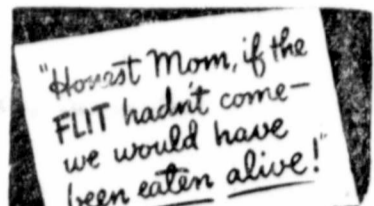 "Honest Mom, if the
FLIT hadn't come—
we would have
been eaten alive!"